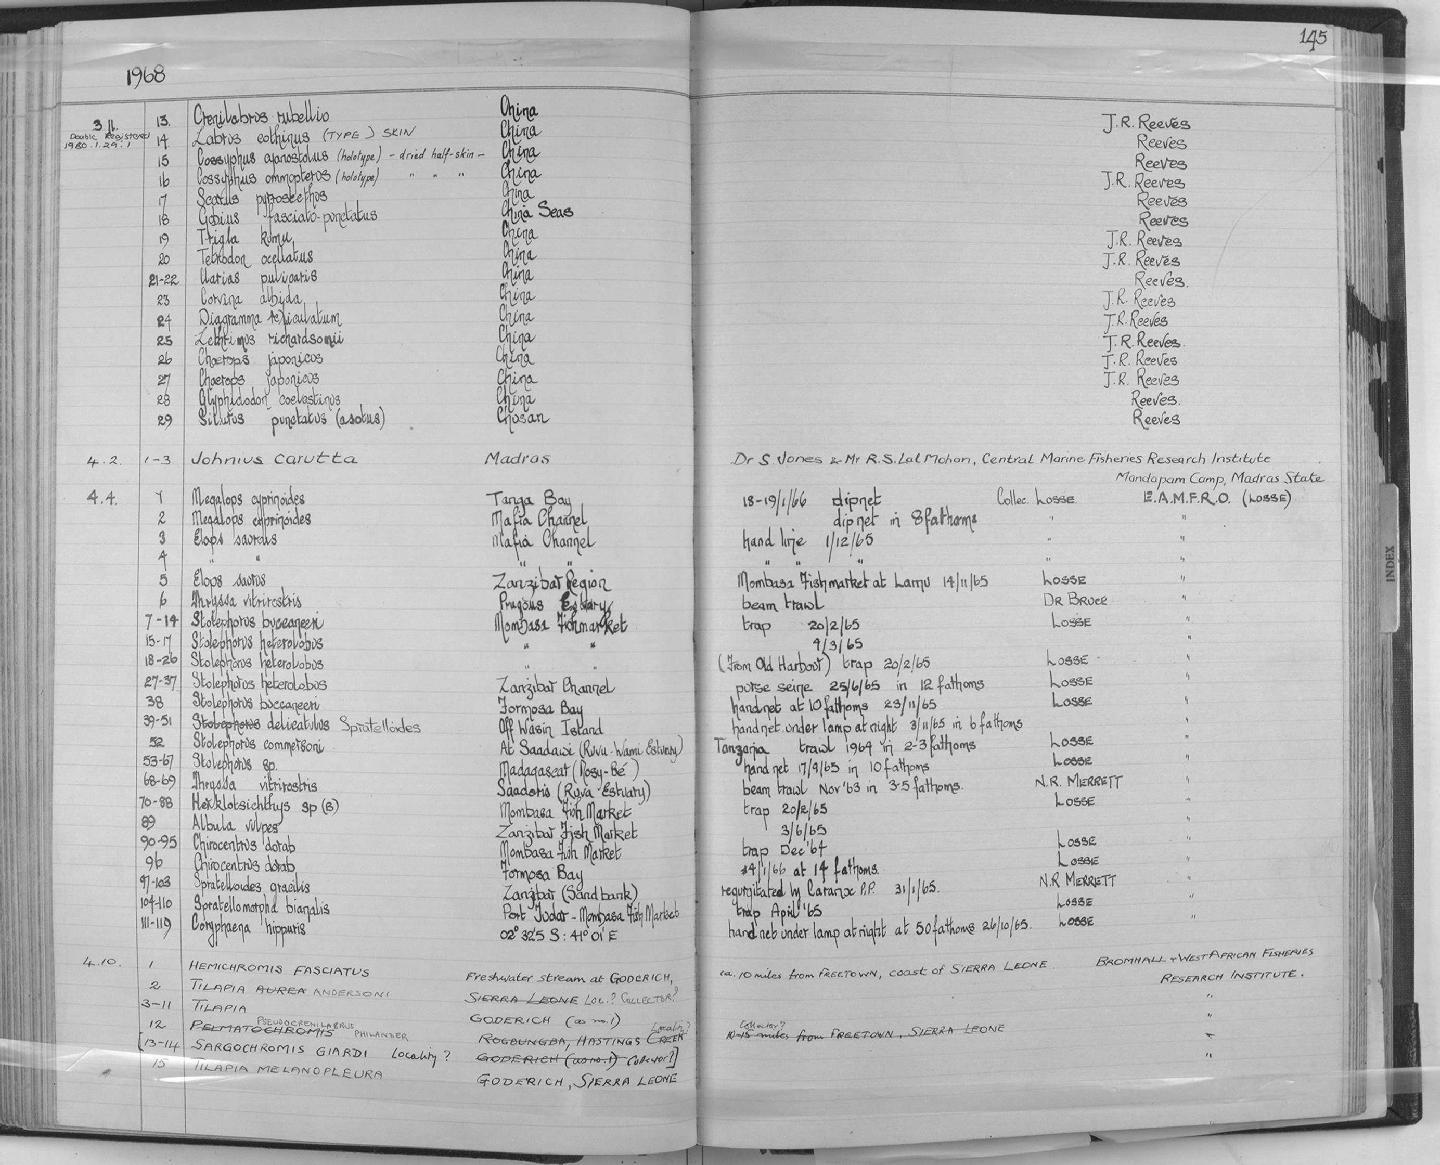 145
1968
3.11. 13. Crenilabrus rubellio China J.R. Reeves
Double Registered 1980.1.29.1 14 Labrus eothinus (TYPE) SKIN China Reeves
15 Cossyphus cyanostolus (holotype) - dried half-skin - China Reeves
16 Cossyphus ommopterus (holotype) " " " China J.R. Reeves
17 Scarus pyrostethus China Reeves
18 Gobius fasciato-punctatus China Seas Reeves
19 Trigla kumu China J.R. Reeves
20 Tetrodon ocellatus China J.R. Reeves
21-22 Clarias pulicaris China Reeves.
23 Corvina albida China J.R. Reeves
24 Diagramma reticulatum China J.R. Reeves
25 Lethrinus richardsonii China J.R. Reeves
26 Choerops japonicus China J.R. Reeves
27 Choerops japonicus China J.R. Reeves
28 Glyphidodon coelestinus China Reeves.
29 Silurus punctatus (asotus) Chosan Reeves
4.2. 1-3 Johnius carutta Madras Dr S. Jones & Mr R.S. Lal Mohan, Central Marine Fisheries Research Institute
Mandapam Camp, Madras State
4.4. 1 Megalops cyprinoides Tanga Bay 18-19/1/66 dipnet Collec. Losse E.A.M.F.R.O. (LOSSE)
2 Megalops cyprinoides Mafia Channel dipnet in 8 fathoms " "
3 Elops saurus Mafia Channel hand line 1/12/65 " "
4 " " " " " " " " "
5 Elops saurus Zanzibar Region Mombasa Fishmarket at Lamu 14/11/65 LOSSE "
6 Thryssa vitrirostris Estuary beam trawl DR BRUCE "
7-14 Stolephorus buccaneeri Mombasa Fishmarket trap 20/2/65 LOSSE "
15-17 Stolephorus heterolobus " " 4/3/65 "
18-26 Stolephorus heterolobus " " (From Old Harbour) trap 20/2/65 LOSSE "
27-37 Stolephorus heterolobus Zanzibar Channel purse seine 25/6/65 in 12 fathoms LOSSE "
38 Stolephorus buccaneeri Formosa Bay handnet at 10 fathoms 23/11/65 LOSSE "
39-51 Stolephorus delicatulus Spratelloides Off Wasin Island handnet under lamp at night 3/11/65 in 6 fathoms "
52 Stolephorus commersoni At Saadawi (Ruvu-Wami Estuary) Tanzania trawl 1964 in 2-3 fathoms LOSSE "
53-67 Stolephorus sp. Madagascar (Nosy-Bé) hand net 17/9/65 in 10 fathoms LOSSE "
68-69 Thryssa vitrirostris Saadani (Ruvu-Estuary) beam trawl Nov '63 in 3-5 fathoms. N.R. MERRETT "
70-88 Herklotsichthys sp (B) Mombasa Fish Market trap 20/2/65 LOSSE "
89 Albula vulpes Zanzibar Fish Market 3/6/65 "
90-95 Chirocentrus dorab Mombasa Fish Market trap Dec '64 LOSSE "
96 Chirocentrus dorab Formosa Bay 4/1/66 at 14 fathoms. LOSSE "
97-103 Spratelloides gracilis Zanzibar (Sandbank) regurgitated by Caranx P.P. 31/1/65. N.R MERRETT "
104-110 Spratellomorpha bianalis Port Tudor - Mombasa Fish Market trap April '65 LOSSE "
111-119 Coryphaena hippuris 02° 32'5 S : 41° 01' E hand net under lamp at night at 50 fathoms 26/10/65. LOSSE "
4.10. 1 HEMICHROMIS FASCIATUS Freshwater stream at GODERICH, ca. 10 miles from FREETOWN, coast of SIERRA LEONE BROMHALL + WEST AFRICAN FISHERIES
RESEARCH INSTITUTE.
2 TILAPIA AUREA ANDERSONI SIERRA LEONE LOC.? COLLECTOR? "
3-11 TILAPIA GODERICH (as no. 1) "
12 PELMATOCHROMIS PSEUDOCRENILABRUS PHILANDER ROGBUNGBA, HASTINGS CREEK Locality? Collector? 10-15 miles from FREETOWN, SIERRA LEONE "
[13-14 SARGOCHROMIS GIARDI Locality? GODERICH (as no. 1) Collector?] "
15 TILAPIA MELANOPLEURA GODERICH, SIERRA LEONE
INDEX